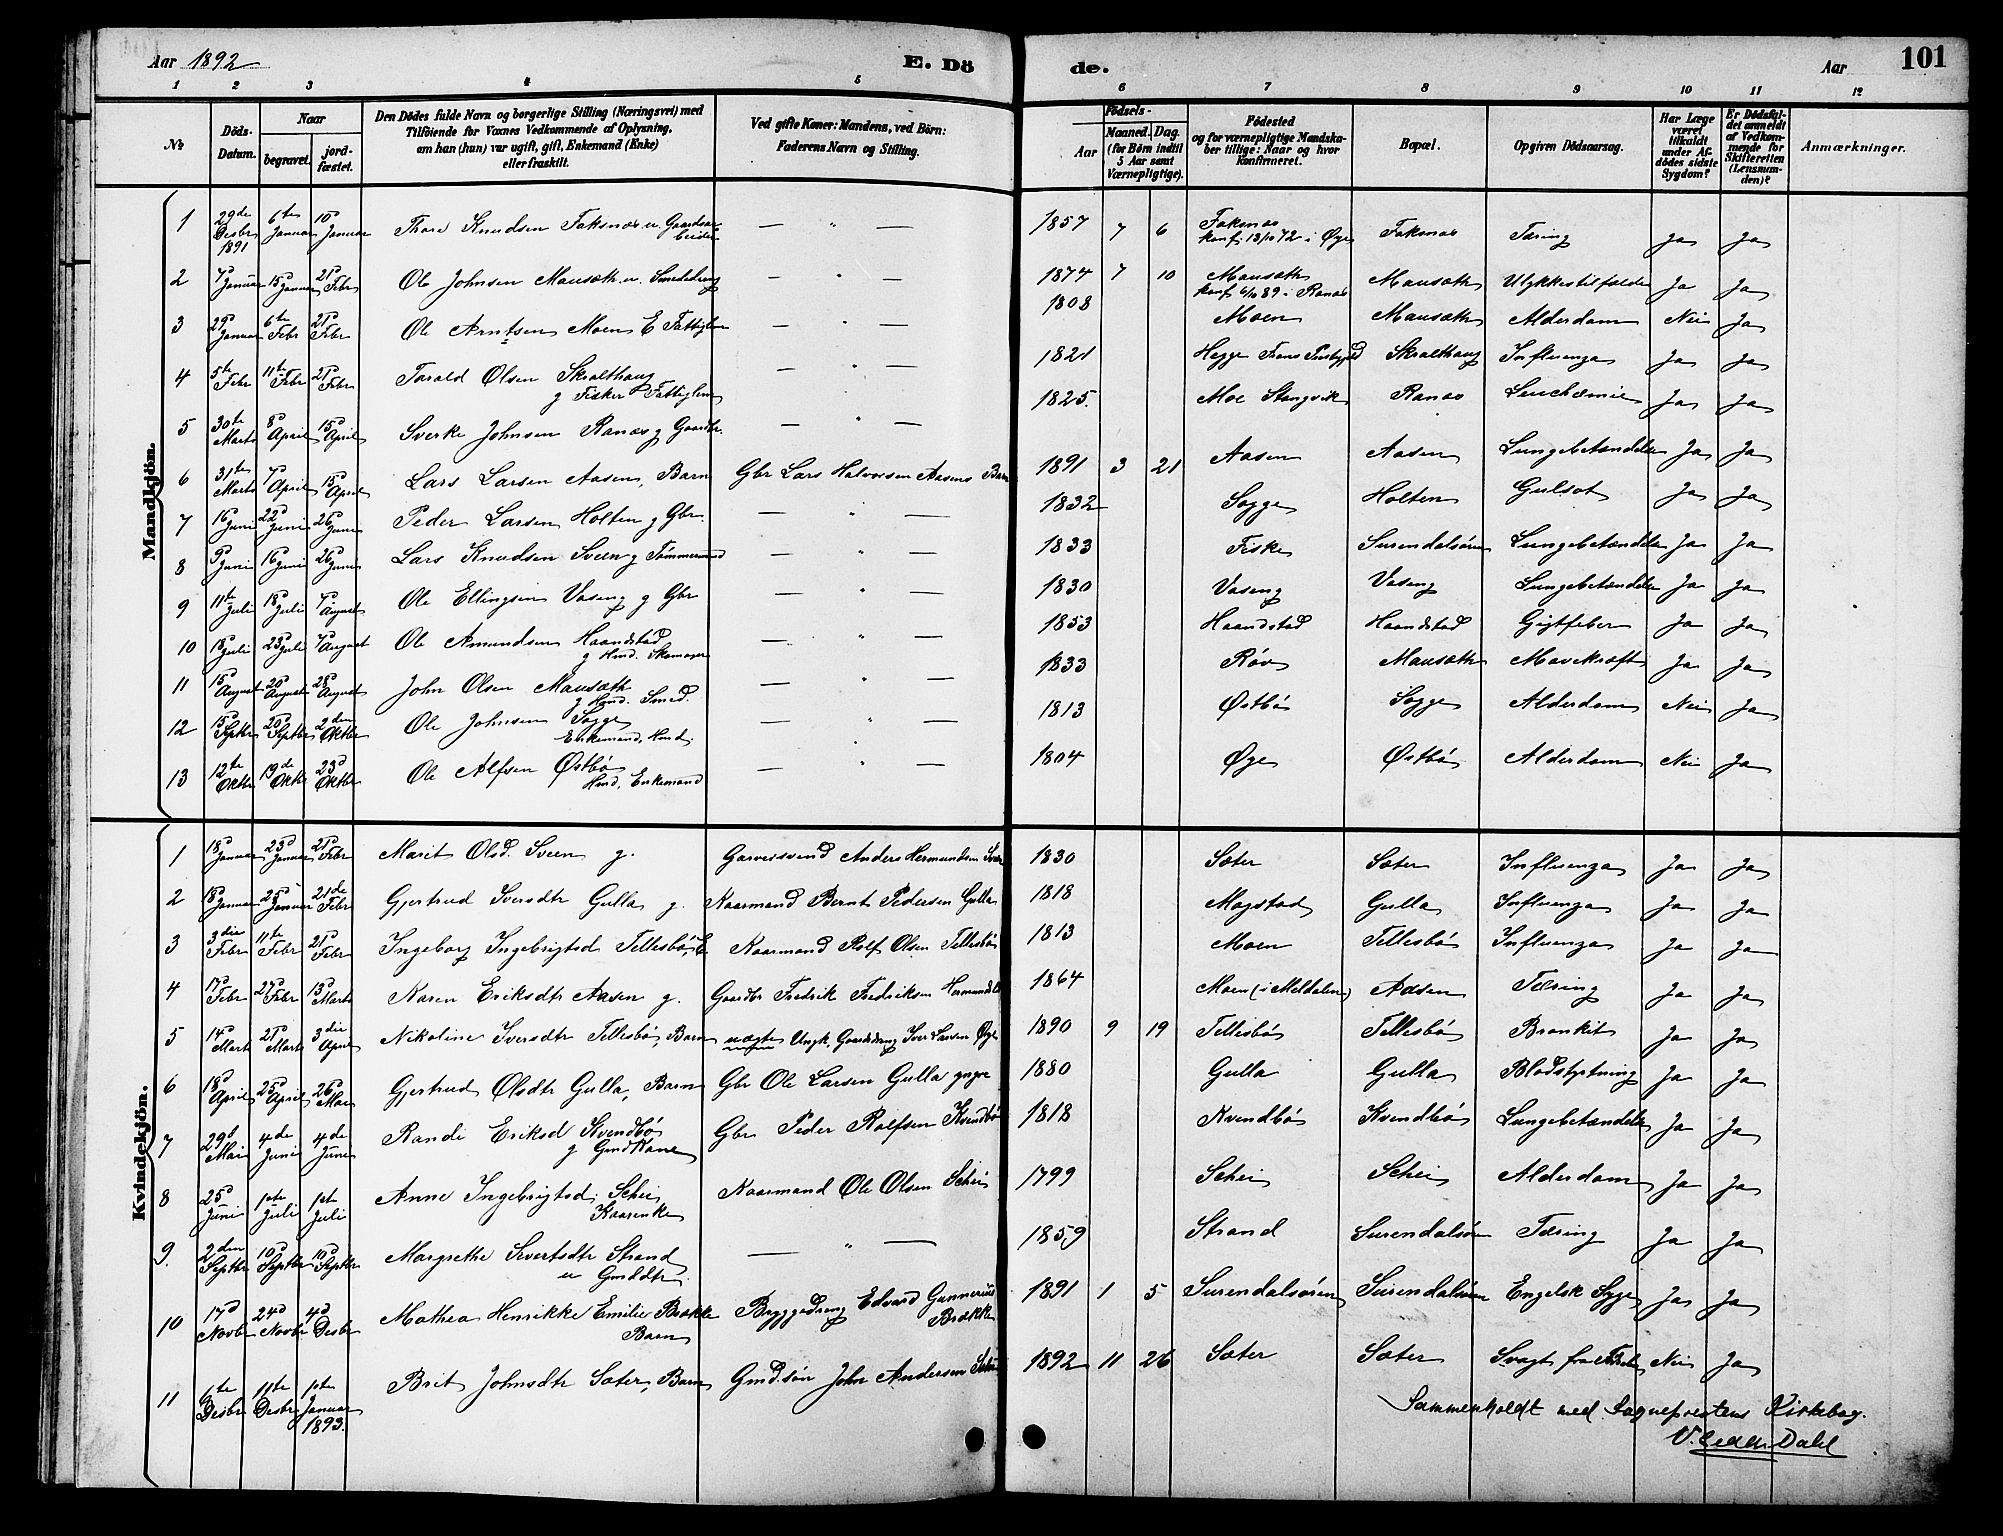 Aar 1892 E. Dö de. Aar 101
1 2 3 4 5 6 7 8 9 10 11 12
№ Döds-Datum. Naar begravet. jordfæstet. Den Dödes fulde Navn og borgerlige Stilling (Næringsvei) med Tilföiende for Voxnes Vedkommende af Oplysning, om han (hun) var ugift, gift, Enkemand (Enke) eller fraskilt. Ved gifte Koner: Mandens, ved Börn: Faderens Navn og Stilling. Födsels- Aar Maaned. Dag. (for Börn indtil 5 Aar samt Værnepligtige). Födested og for værnepligtige Mandskaber tillige: Naar og hvor Konfirmeret. Bopæl. Opgiven Dödsaarsag. Har Læge været tilkaldt under Afdödes sidste Sygdom? Er Dödsfaldet anmeldt af Vedkommende for Skifteretten (Lensmanden)? Anmærkninger.
Mandkjön.
1 29de Desbr 1891 6te Januar 10d Januar Thore Knudsen Foksnæs u. Gaardarbeider — " — 1857 7 6 Foksnæs konf. 13/10 72 i Øye Foksnæs Tæring Ja Ja
2 7d Januar 15d Januar 21d Febr Ole Johnsen Mausæth u. Smededreng — " — 1874 7 10 Mausæth konf 6/10 89 i Ranæs Mausæth Ulykkestilfælde Ja Ja
3 29d Januar 6te Febr 21d Febr Ole Arntsen Moen E Fattiglem — " — 1808 Moen Mausæth Alderdom Nei Ja
4 5te Febr 11te Febr 21d Febr Torald Olsen Skralthaug g Fisker Fattiglem — " — 1821 Hegge Skralthaug Influenza Ja Ja
5 30te Marts 8d April 15d April Sverke Johnsen Ranæs g Gaardbr. — " — 1825. Moe Stangvik Ranæs Leuchæmie Ja Ja
6 31te Marts 7d April 15d April Lars Larsen Aasen, Barn Gbr Lars Halvorsen Aasens Barn 1891 3 21 Aasen Aasen Lungebetændelse Ja Ja
7 16d Juni 22d Juni 26d Juni Peder Larsen Holten g Gbr. — " — 1832 Sogge Holten Gulsot Ja Ja
8 9d Juni 16d Juni 26d Juni Lars Knudsen Sveen g Tömmermand — " — 1833 Fiske Surendalsören Lungebetændelse Ja Ja
9 11te Juli 18d Juli 7d August Ole Ellingsen Vaseng g Gbr — " — 1830 Vaseng Vaseng Lungebetændelse Ja Ja
10 18d Juli 23d Juli 7d August Ole Amundsen Haandstad g Hmd. Skomager — " — 1853 Haandstad Haandstad Gigtfeber Ja Ja
11 15d August 20d August 28d August John Olsen Mausæth g Hmd. Smed. — " — 1833 Röv Mausæth Mavekræft Ja Ja
12 15d Septbr 20d Septbr 2den Oktbr Ole Johnsen Sogge Enkemand, Hmd. — " — 1813 Østbö Sogge Alderdom Nei Ja
13 12te Oktbr 19de Oktbr 23d Oktbr Ole Alfsen Østbö Hmd, Enkemand — " — 1804 Øye Østbö Alderdom Nei Ja
Kvindekjön.
1 18d Januar 23d Januar 21d Febr Marit Olsd. Sveen g. Garversvend Anders Hermundsen Sveen 1830 Sæter Sæter Influenza Ja Ja
2 18d Januar 25d Januar 21de Febr Gjertrud Iversdtr Gulla g. Kaarmand Bernt Pedersen Gulla 1818 Mogstad Gulla Influenza Ja Ja
3 3die Febr 11te Febr 21d Febr Ingeborg Ingebrigtsd Tellesbö, E Kaarmand Rolf Olsen Tellesbö 1813 Moen Tellesbö Influenza Ja Ja
4 17d Febr 27d Febr 13d Marts Karen Eriksdtr Aasen g. Gaardbr Fredrik Fredriksen 1864 Moen (i Meldalen) Aasen Tæring Ja Ja
5 14d Marts 21d Marts 3die April Nikoline Iversdtr Tellesbö, Barn uægte Ungk. Gaardsdreng Iver Larsen Øye 1890 9 19 Tellesbö Tellesbö Bronkit Ja Ja
6 18d April 25d April 26d Mai Gjertrud Olsdtr Gulla, Barn Gbr Ole Larsen Gulla 1880 Gulla Gulla Blodstyrtning Ja Ja
7 29d Mai 4de Juni 4de Juni Randi Eriksd Kvendbö g Gmdkone Gbr Peder Rolfsen Kvendbö 1818 Kvendbö Kvendbö Lungebetændelse Ja Ja
8 25d Juni 1ste Juli 1ste Juli Anne Ingebrigtsd. Schei Kaarenke Kaarmand Ole Olsen Schei 1799 Schei Schei Alderdom Ja Ja
9. 2den Septbr 10d Septbr 10d Septbr Margrethe Sivertsdtr Strand u Gmddtr — " — 1859 Strand Surendalsören Tæring Ja Ja
10 17d Novbr 24d Novbr 4d Desbr Mathea Henrikke Emilie Brække Barn Bryggedreng Edvard Gunnerius Brække 1891 1 5 Surendalsören Surendalsören Engelsk Syge Ja Ja
11 6te Desbr 11te Desbr 1ste Januar 1893. Brit Johnsdtr Sæter, Barn Gmd.sön John Andersen 1892 11 26 Sæter Sæter Svagt fra Födsel Nei Ja
Sammenholdt med Sogneprestens Kirkebog.
Dahl